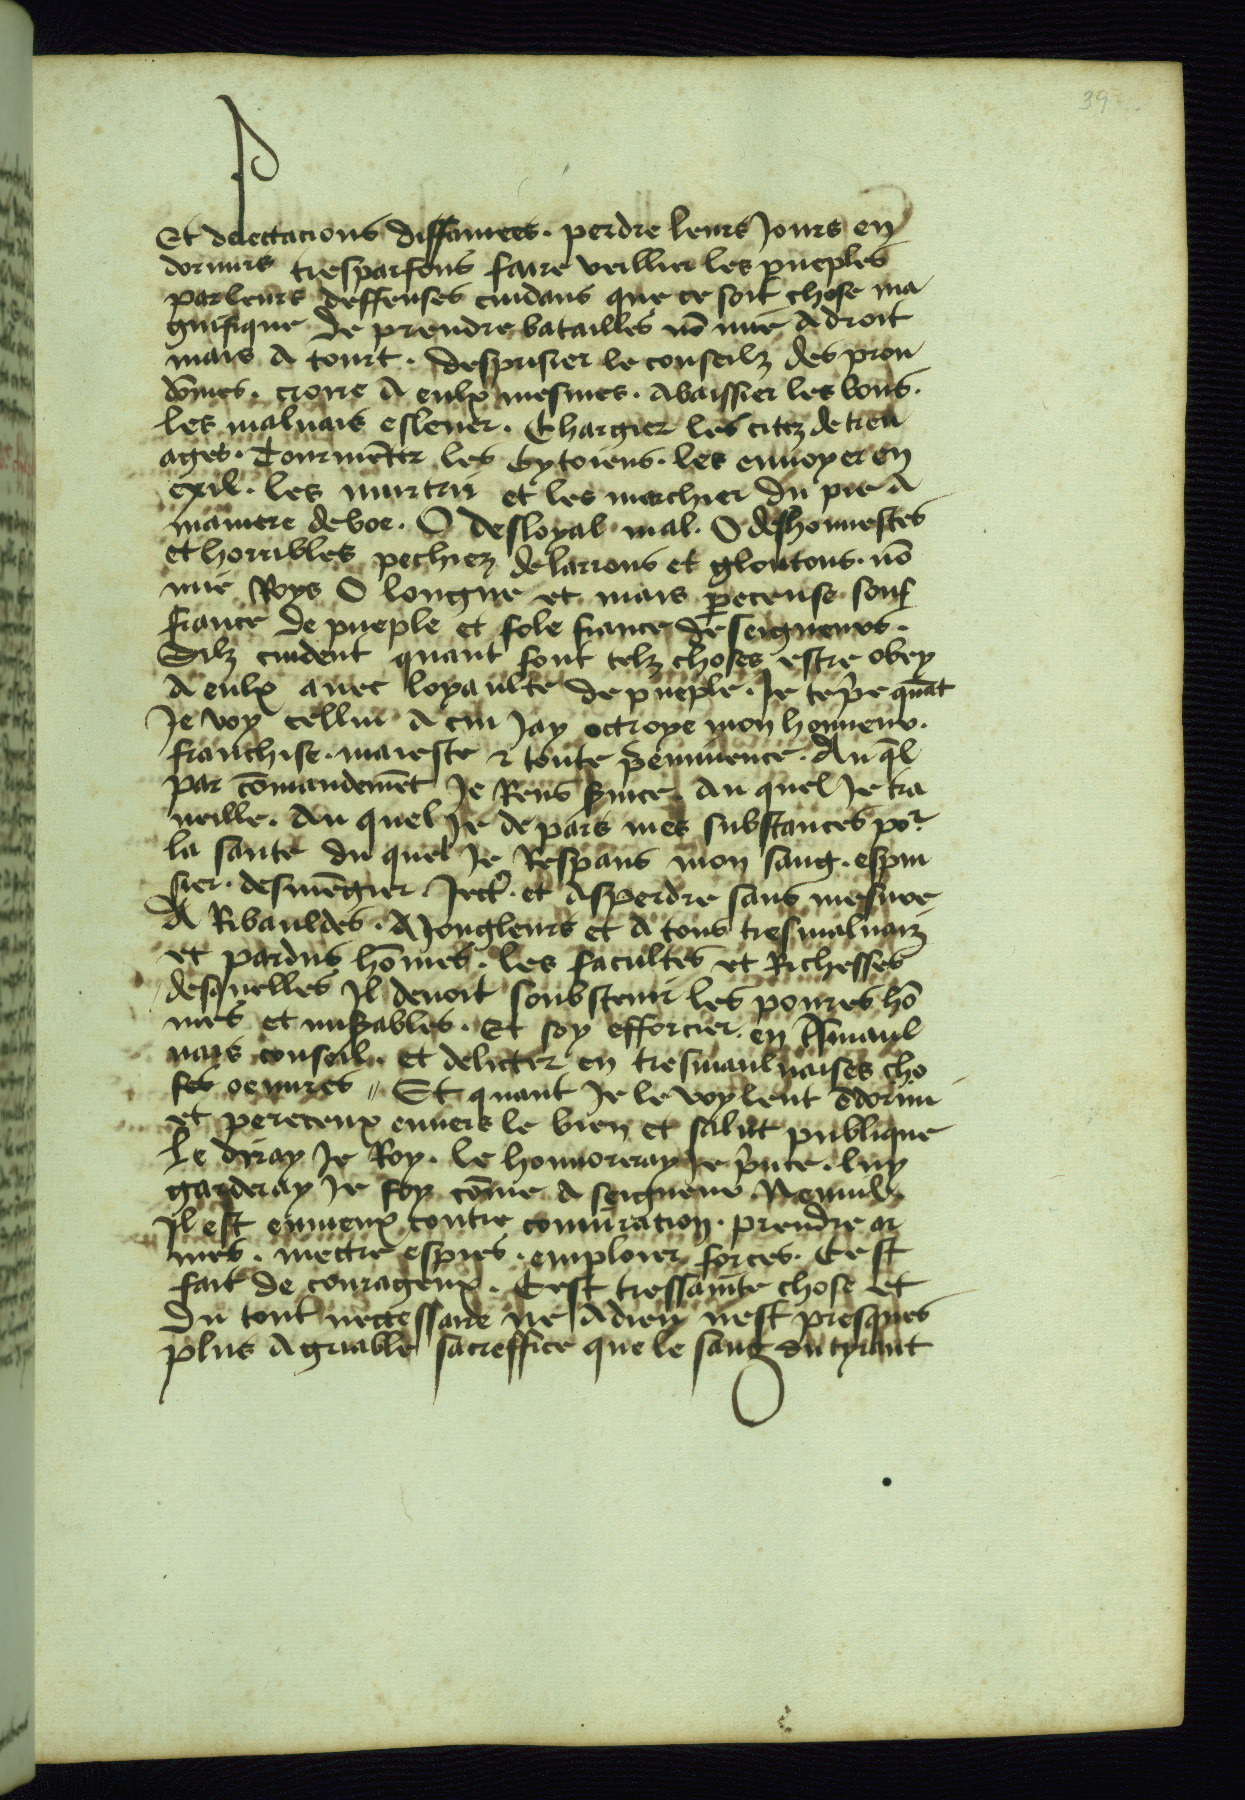 39
Et delectacions diffamees. perdre leurs Jours en
dormirs tresparfons faire veillier les pueples
par leurs deffenses cuidans que ce soit chose ma
gnifique de prendre batailles nō mie A droit
mais A tourt. desprisier le conseilz des preu
dōmes. croire A eulx mesmes. Abaissier les bons.
les malvais eslever. Chargier les citez de treu
ages. Tourmēter les Cytoiens. les envoyer en
exil. les murtrir et les marchier du pie A
maniere de boe. O desloyal mal. O deshonnestes
et horribles pechiez de larrons et gloutons. nō
mie Roys O longue et mais perecuse souf
france de pueple et fole fiance de seigneurs.
Silz cuident quant font telz choses estre obey
A eulx avec loyaulte de pueple. Je te p̄e quāt
Je voy cellui A cui Jay octroye mon honneur.
franchise. maieste & toute p̄eminence. Au q̄l
par cōmandemēt Je Rens service. Au quel Je tra
veille. Au quel Je depars mes substances por
la sante du quel Je Respans mon sang. espui
sier. desmēgier. Jectr. et Asperdre sans mesure
A Ribauldes. A Jongleurs et A tous tresmalvaiz
et pardus hōmes. les facultes et Richesses
desquelles Il devoit soubstenir les poures hō
mes et miserables. Et soy efforcier en tresmaul
vais conseil. et delicter en tresmaulvaises cho
ses oeuvres // Et quant Je le voy lent ēdormi
et pereceux envers le bien et salut publique
Le diray Je Roy. le honnoreray Je p̄nce. luy
garderay Je foy cōme A seigneur Nennil.
Il est ennieux contre coniuration. prendre ar
mes. mettre espies. emploier forces. Cest
fait de courageux. Cest tressaīte chose et
du tout necessaire ne A dieu nest presques
plus Agreable sacreffice que le sang du tyrant